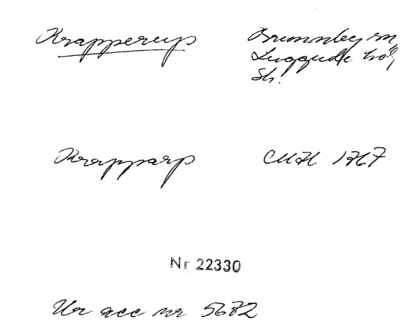 Krapperup Brunnby sn
Luggude hd,
Sk.
Krapparp CMH 1767
Nr 22330
Ur acc nr 5682